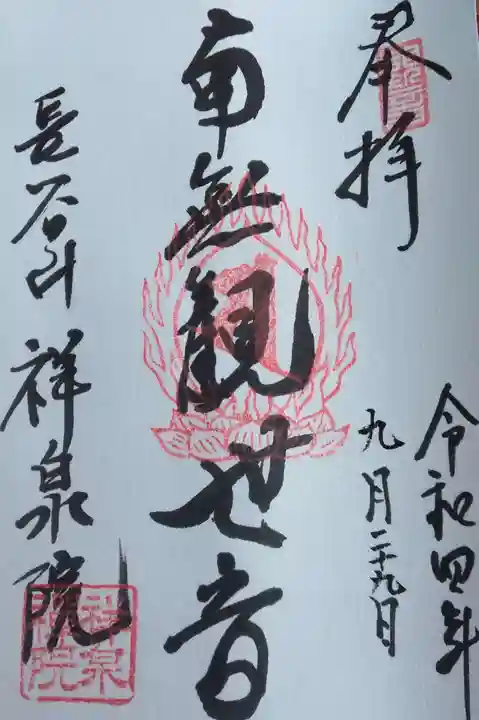 奉拝
令和四年
九月二十九日
南無観世音
長谷山祥泉院
祥泉
禅院